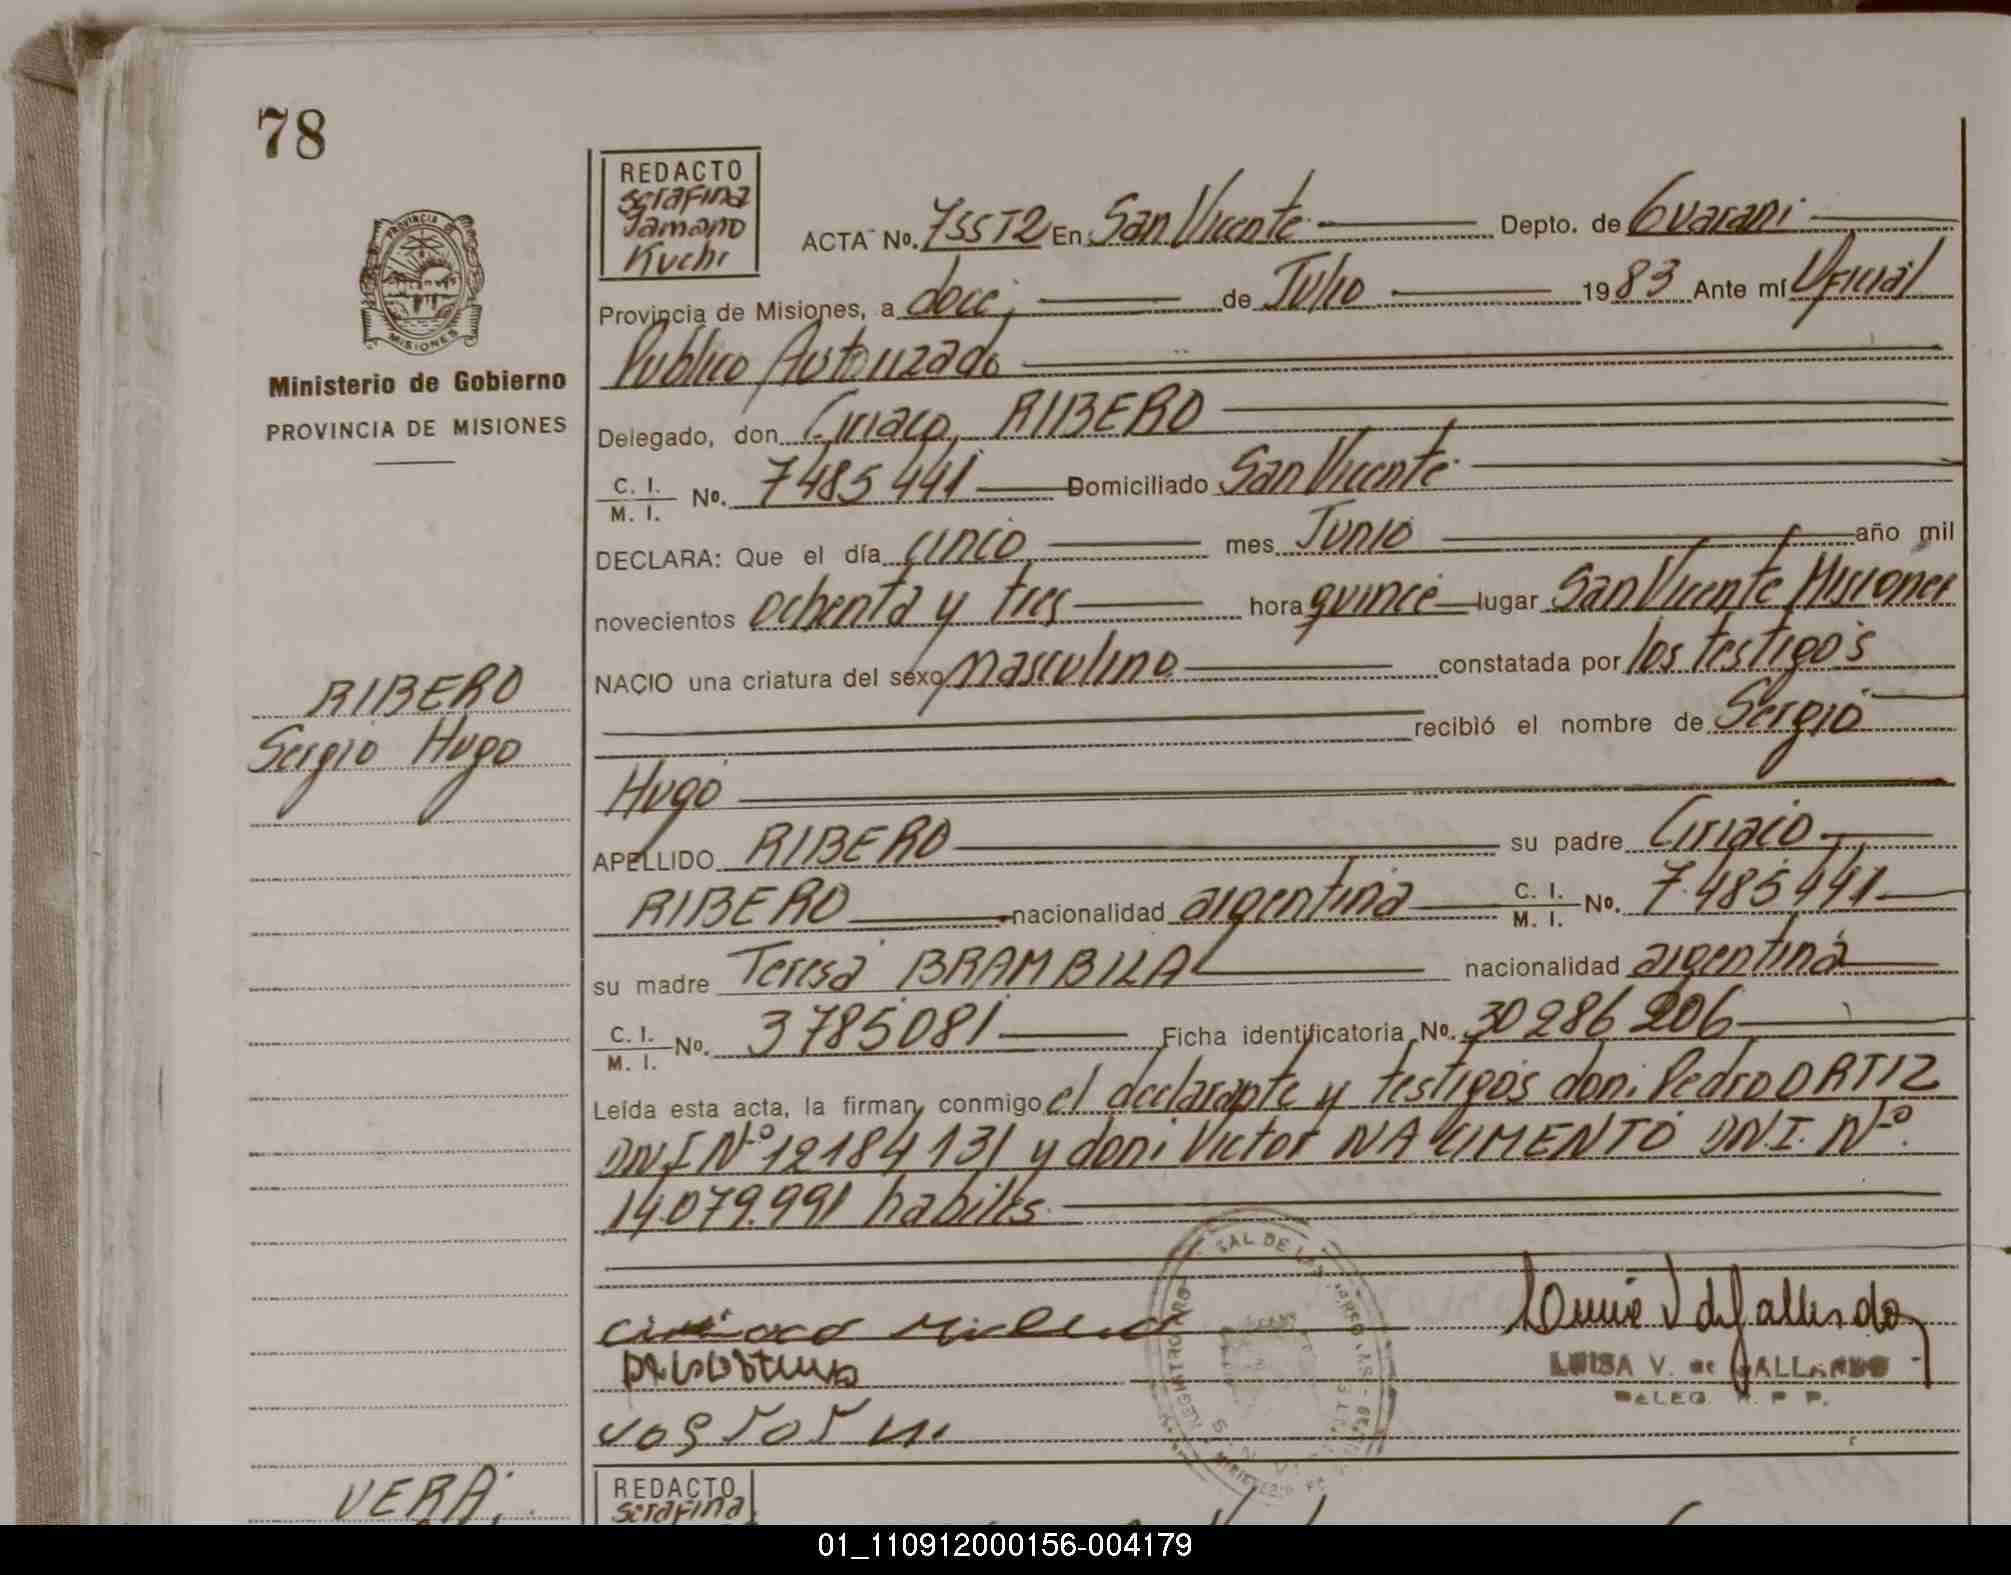 78
PROVINCIA
MISIONES
Ministerio de Gobierno
PROVINCIA DE MISIONES
RIBERO
Sergio Hugo
VERA
REDACTO
Serafina
Tamano
Kuchi
ACTA No. 75ST2 En San Vicente Depto. de Guarani
Provincia de Misiones, a doce de Julio 1983 Ante mí Oficial
Publico Autorizado
Delegado, don Ciriaco RIBERO
C. I. / M. I. No. 7485441 Domiciliado San Vicente
DECLARA: Que el día cinco mes Junio año mil
novecientos ochenta y tres hora quince lugar San Vicente Misiones
NACIO una criatura del sexo masculino constatada por los testigos
recibió el nombre de Sergio
Hugo
APELLIDO RIBERO su padre Ciriaco
RIBERO nacionalidad argentina C. I. / M. I. No. 7.485441
su madre Teresa BRAMBILA nacionalidad argentina
C. I. / M. I. No. 3785081 Ficha identificatoria No. 30286206
Leída esta acta, la firman conmigo el declarante y testigos don: Pedro ORTIZ
DNI Nº 12184131 y don: Victor NACIMENTO DNI. Nº
14.079.991 habiles
LUISA V. de GALLARDO
DELEG. R. P. P.
REDACTO
Serafina
01_110912000156-004179